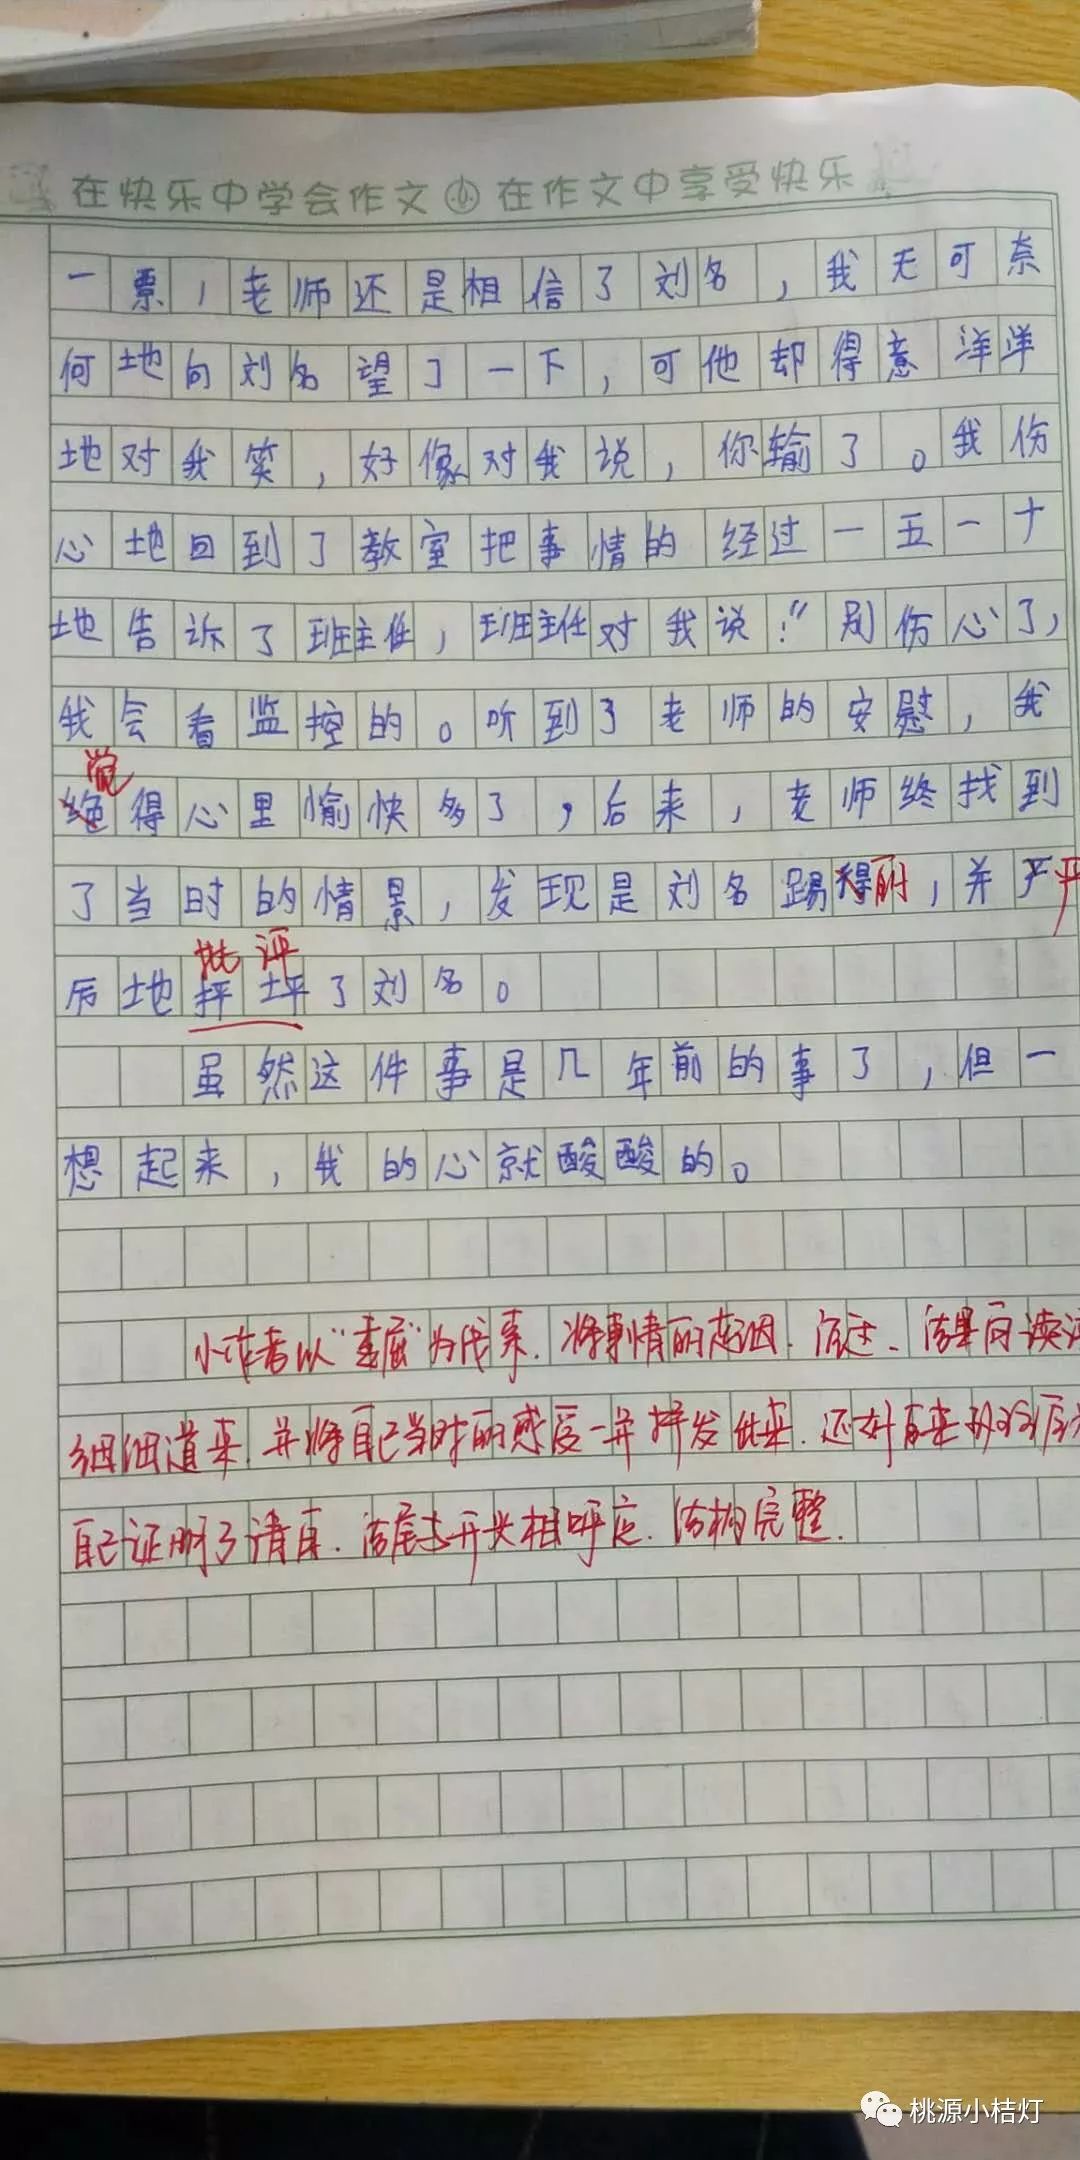 在快乐中学会作文 在作文中享受快乐
一票，老师还是相信了刘名，我无可奈
何地向刘名望了一下，可他却得意洋洋
地对我笑，好像对我说，你输了。我伤
心地回到了教室把事情的经过一五一十
地告诉了班主任，班主任对我说：“别伤心了，
我会看监控的。听到了老师的安慰，我
觉
得心里愉快多了，后来，老师终找到
了当时的情景，发现是刘名踢的，并严
批评
厉地抨坪了刘名。
虽然这件事是几年前的事了，但一
想起来，我的心就酸酸的。
小作者以“委屈”为线索，将事情的起因、经过、结果向读
细细道来，并将自己当时的感受一并抒发出来，还好后来
自己证明了清白，结尾与开头相呼应，结构完整。
桃源小桔灯